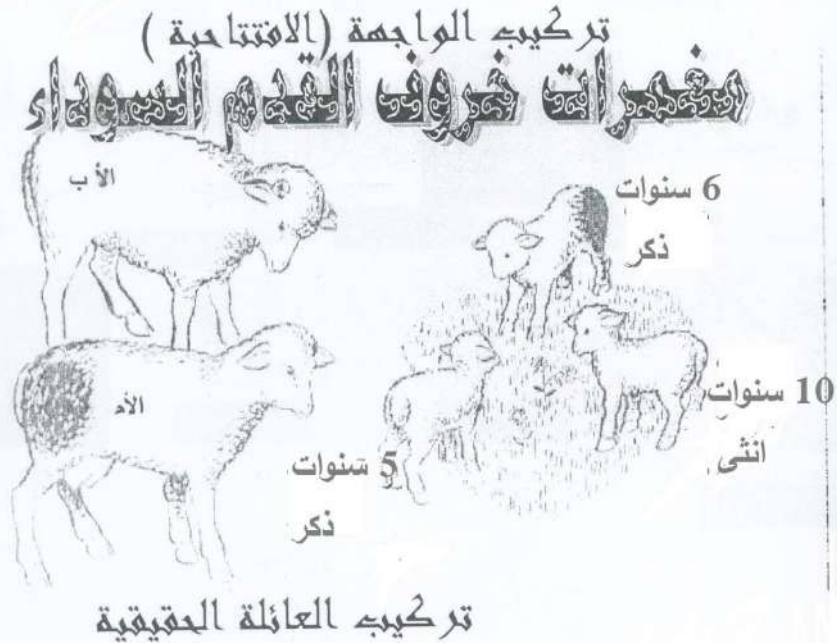 تركيب الواجهة (الافتتاحية )
مغمرات خروف القدم السوداء
الأب
6 سنوات
ذكر
الأم
10 سنوات
انثى
5 سنوات
ذكر
تركيب العائلة الحقيقية